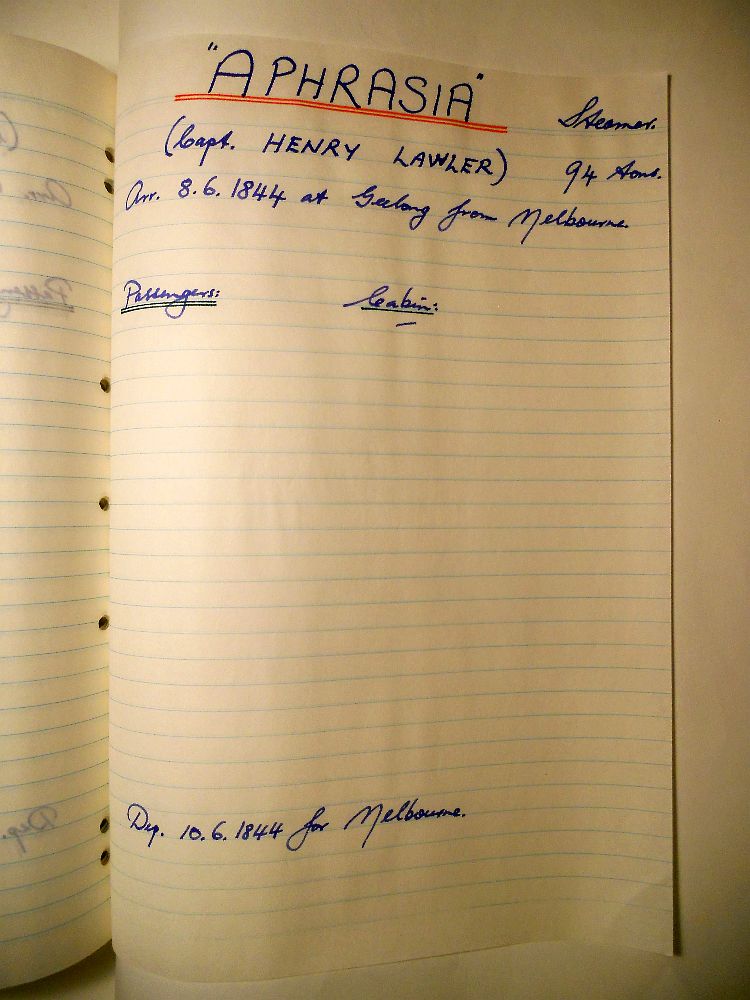 "APHRASIA"
Steamer.
(Capt. HENRY LAWLER)
94 tons.
Arr. 8.6.1844 at Geelong from Melbourne.
Passengers: Cabin:
Dep. 10.6.1844 for Melbourne.